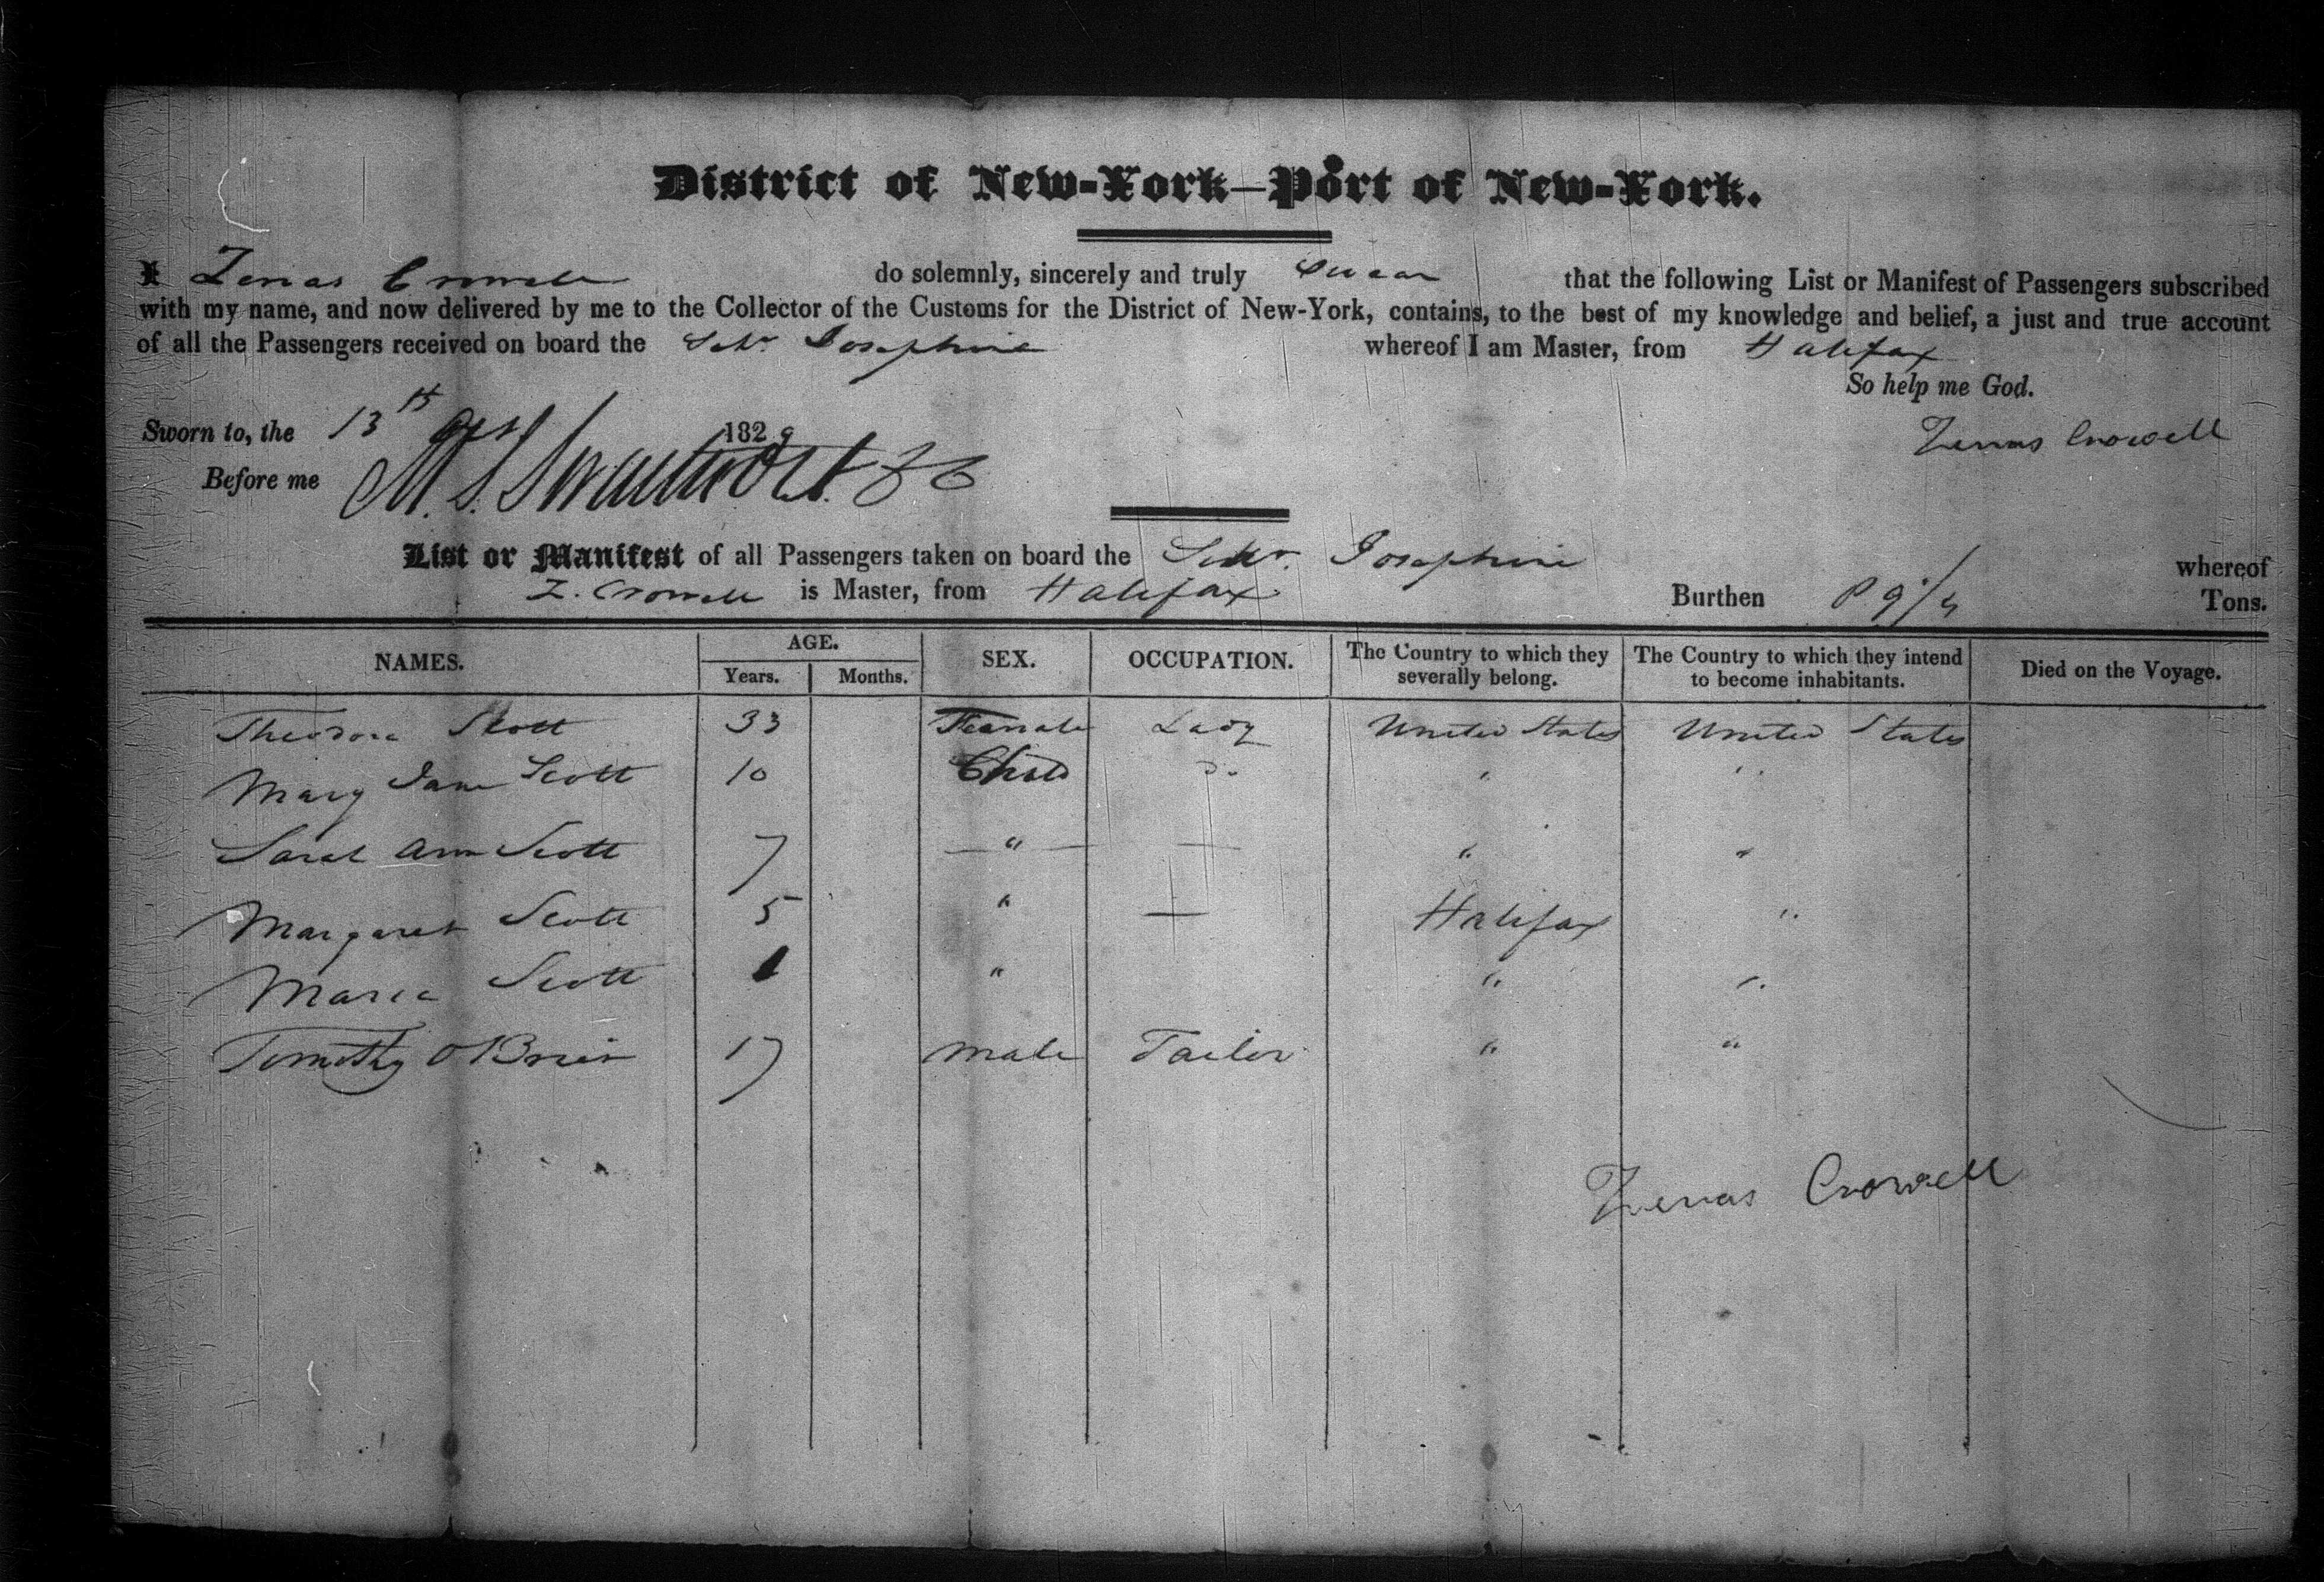 District of New-York—Port of New-York.
I Zenas Crowell do solemnly, sincerely and truly Swear that the following List or Manifest of Passengers subscribed
with my name, and now delivered by me to the Collector of the Customs for the District of New-York, contains, to the best of my knowledge and belief, a just and true account
of all the Passengers received on board the Schr Josephine whereof I am Master, from Halifax
So help me God.
Sworn to, the 13th Oct 1829 Zenas Crowell
Before me M. S. Swartwout
List or Manifest of all Passengers taken on board the Schr. Josephine whereof
Z. Crowell is Master, from Halifax Burthen Tons.
NAMES. AGE. Years. Months. SEX. OCCUPATION. The Country to which they severally belong. The Country to which they intend to become inhabitants. Died on the Voyage.
Theodora Scott 33 Female Lady United States United States
Mary Jane Scott 10 Child Do " "
Sarah Ann Scott 7 — " — — " "
Margaret Scott 5 " — Halifax "
Maria Scott 1 " " "
Timothy O Brien 17 Male Tailor " "
Zenas Crowell